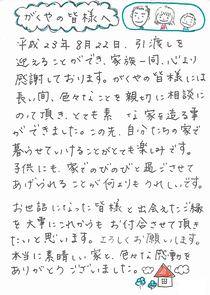 がくやの皆様へ
平成23年8月22日、引渡しを
迎えることができ、家族一同、心より
感謝しております。がくやの皆様には
長い間、色々なことを親切に相談に
のって頂き、とても素 な家を造る事
ができました。この先、自分たちの家で
暮らせていけることがとても楽しみです。
子供にも、家でのびのびと過ごさせて
あげられることが何よりもうれしいです。
お世話になった皆様と出会えたご縁
を大事にこれからもお付合させて頂き
たいと思います。よろしくお願いします。
本当に素晴しい家と、色々な感動を
ありがとうございました。